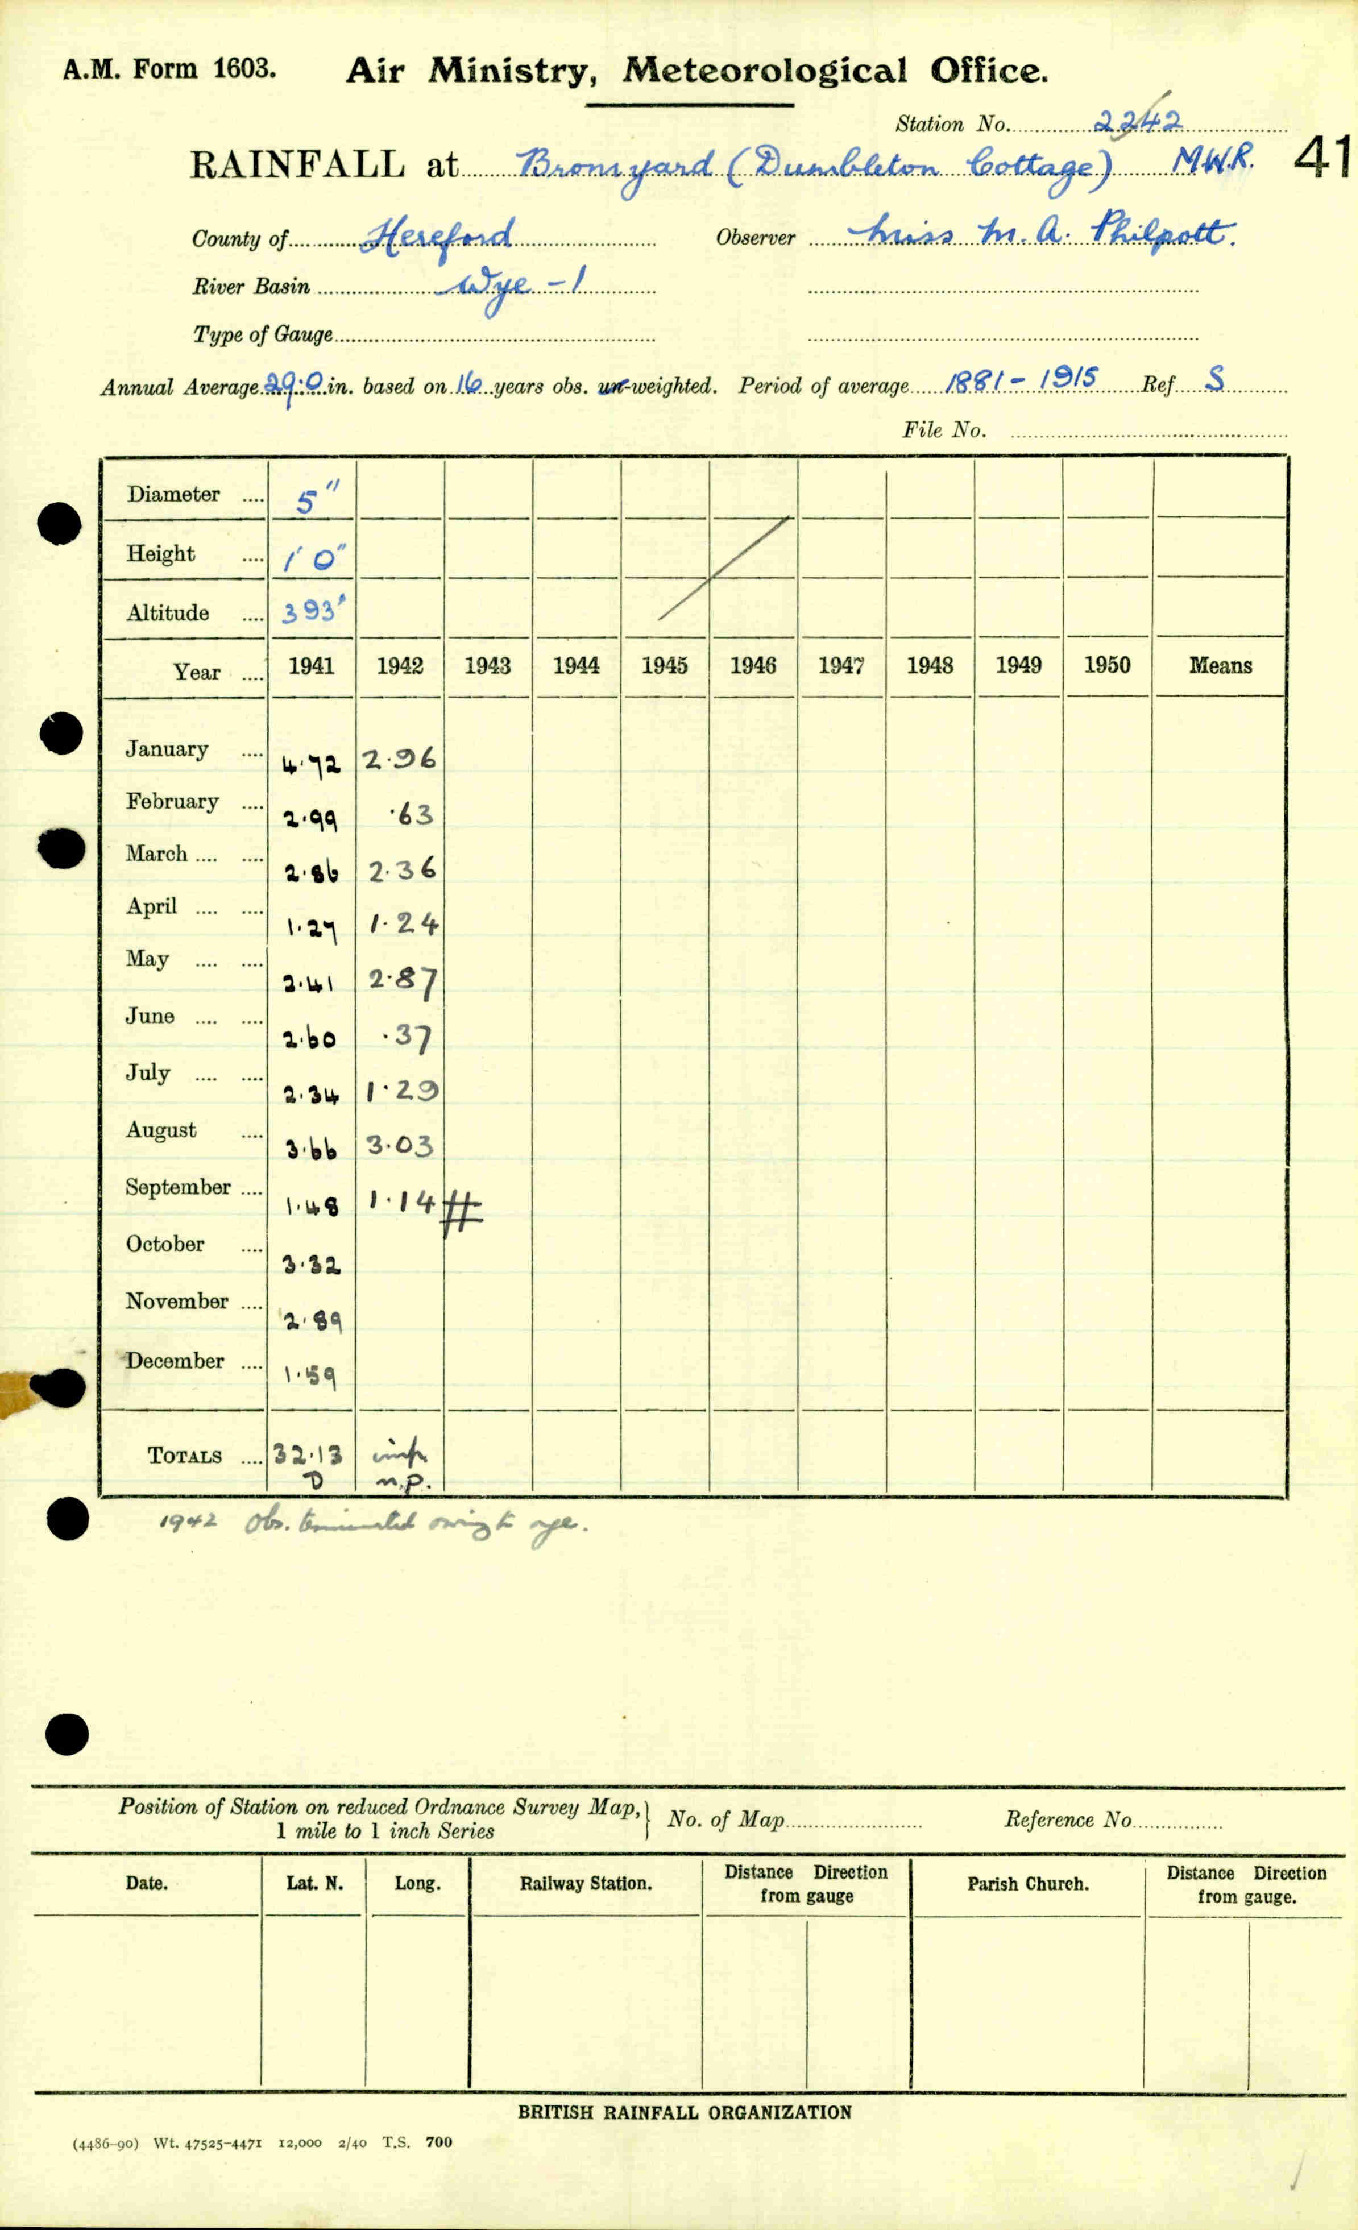 A.M. Form 1603. Air Ministry, Meteorological Office.
Station No. 2242
RAINFALL at Bromyard (Dumbleton Cottage) M.W.R. 41
County of Hereford Observer Miss M. A. Philpott.
River Basin Wye - 1
Type of Gauge
Annual Average 29.0 in. based on 16 years obs. un-weighted. Period of average 1881 - 1915 Ref. S
File No.
Diameter .... 5"
Height .... 1' 0"
Altitude .... 393'
Year .... 1941 1942 1943 1944 1945 1946 1947 1948 1949 1950 Means
January .... 4.72 2.96
February .... 2.99 .63
March .... .... 2.86 2.36
April .... .... 1.27 1.24
May .... .... 2.41 2.87
June .... .... 2.60 .37
July .... .... 2.34 1.29
August .... 3.66 3.03
September .... 1.48 1.14 #
October .... 3.32
November .... 2.89
December .... 1.59
TOTALS .... 32.13 imp.
D n.p.
1942 Obs. terminated owing to age.
Position of Station on reduced Ordnance Survey Map, } No. of Map Reference No.
1 mile to 1 inch Series
Date. Lat. N. Long. Railway Station. Distance Direction from gauge Parish Church. Distance Direction from gauge.
BRITISH RAINFALL ORGANIZATION
(4486-90) Wt. 47525-4471 12,000 2/40 T.S. 700